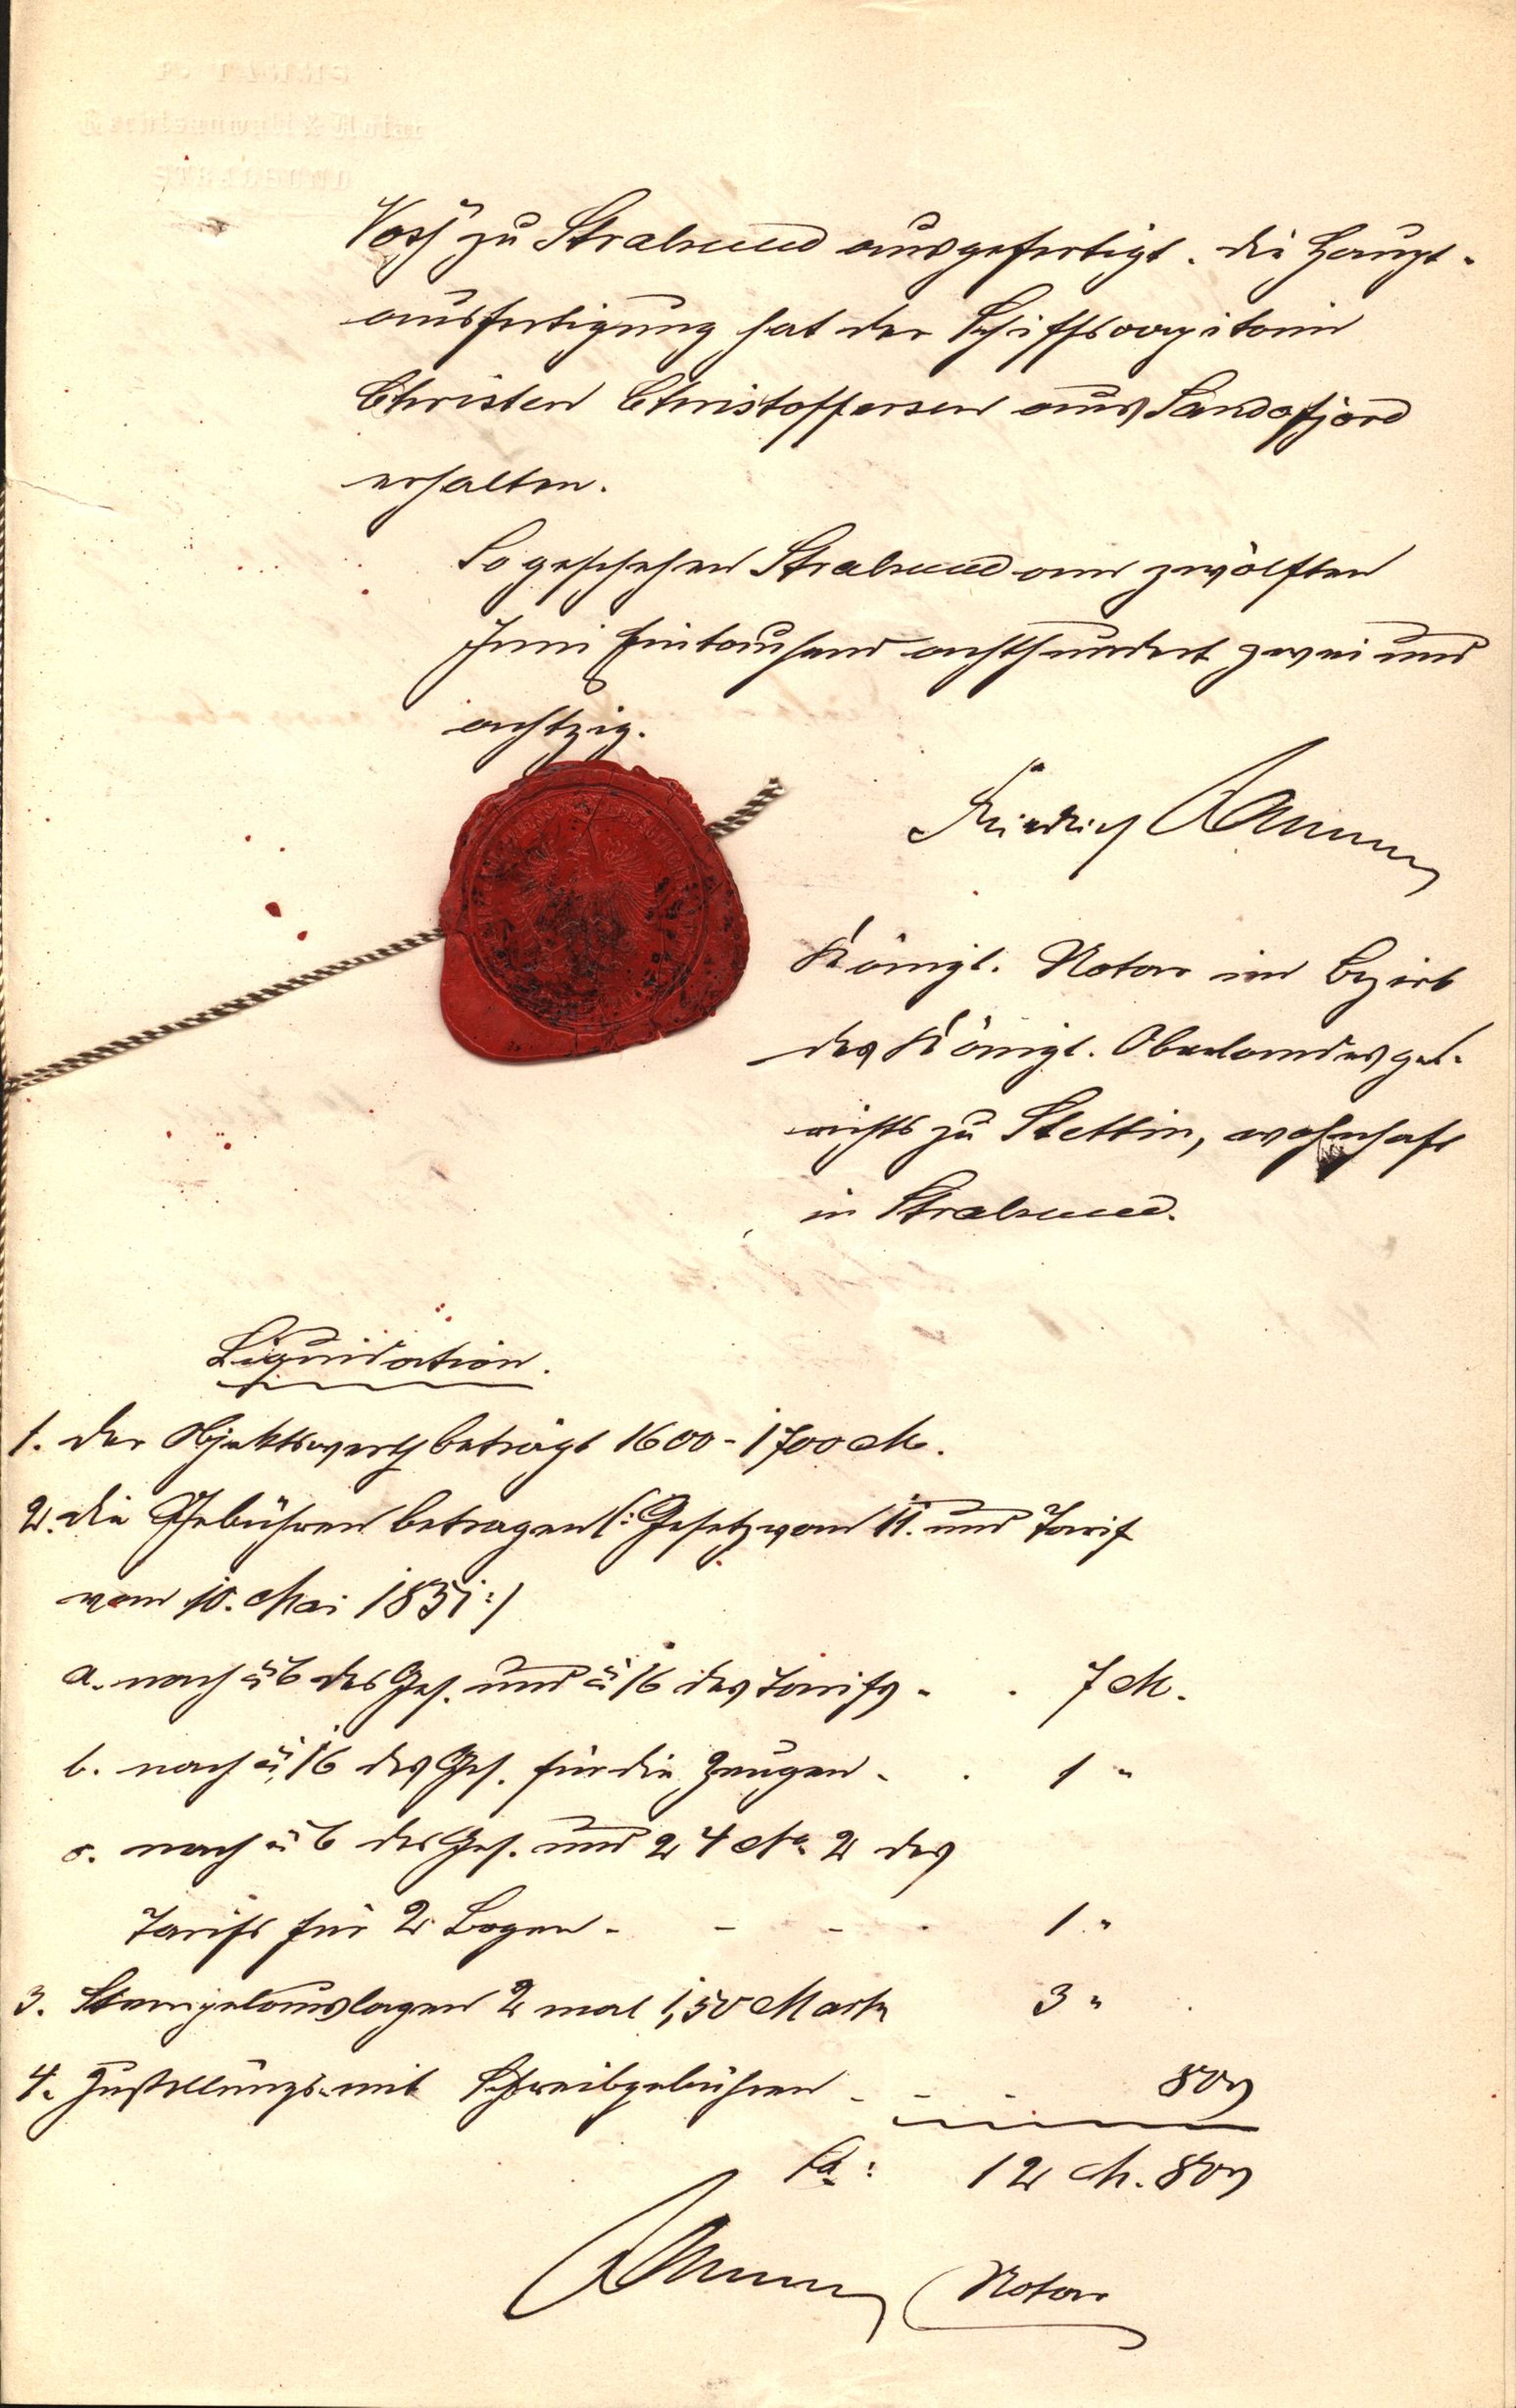 Rechtsanwalt & Notar
STRALSUND
Voß zu Stralsund ausgefertigt. Die Haupt-
ausfertigung hat der Schiffscapitain
Christen Christoffersen aus Sandefjord
erhalten.
So geschehen Stralsund am zwölften
Juni Eintausend achthundert zwei und
achtzig.
Friedrich
Königl. Notar im Bezirk
des Königl. Oberlandesge-
richts zu Stettin, wohnhaft
in Stralsund.
Liquidation.
1. Der Objektswerth beträgt 1600-1700 M.
2. Die Gebühren betragen (: Gesetz vom 11. und Tarif
vom 10. Mai 1851 :)
a. nach § 6 des Ges. und § 16 des Tarifs - . 7 M.
b. nach § 16 des Ges. für die Zeugen - . 1 "
c. nach § 6 des Ges. und 24 No 2 des
Tarifs für 2 Bogen - - - . 1 "
3. Stempelauslagen 2 mal 1,50 Mark 3 "
4. Zustellungs- mit Schreibgebühren - - - 80
Sa: 12 M. 80
Notar